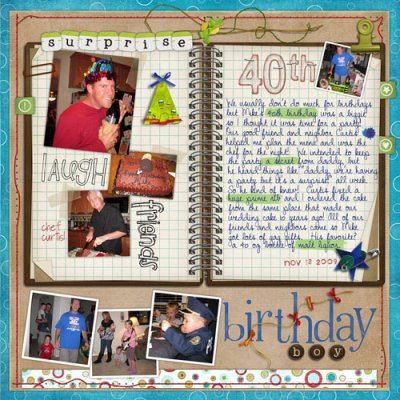 surprise
40th
We usually don't do much for birthdays
but Mike's 40th birthday was a biggie
so I thought it was time for a party!
Our good friend and neighbor Curtis
helped me plan the menu and was the
chef for the night. We intended to keep
the party a secret from daddy, but
he heard things like "daddy, we're having
a party but it's a surprise" all week.
So he kind of knew! Curtis fixed a
huge prime rib and I ordered the cake
from the same place that made our
wedding cake 10 years ago! All of our
friends and neighbors came so Mike
got lots of gag gifts. His favorite?
a 40 oz bottle of malt liquor.
nov 13 2009
laugh
friends
chef
curtis!
birthday
boy